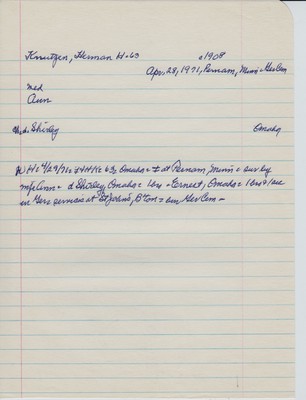 Knutzen, Herman H - 63 c1908
Apr. 28, 1971, Perham, Minn - Ger Cem
med
Ann
Md: Shirley Omaha
W H: 4/29/71: Omaha = at Perham, Minn = sur by
wife Ann = d Shirley, Omaha = 1 bro = Ernest, Omaha = 1 bro's/sis
in Ger = services at St John's, = bur Ger Cem =